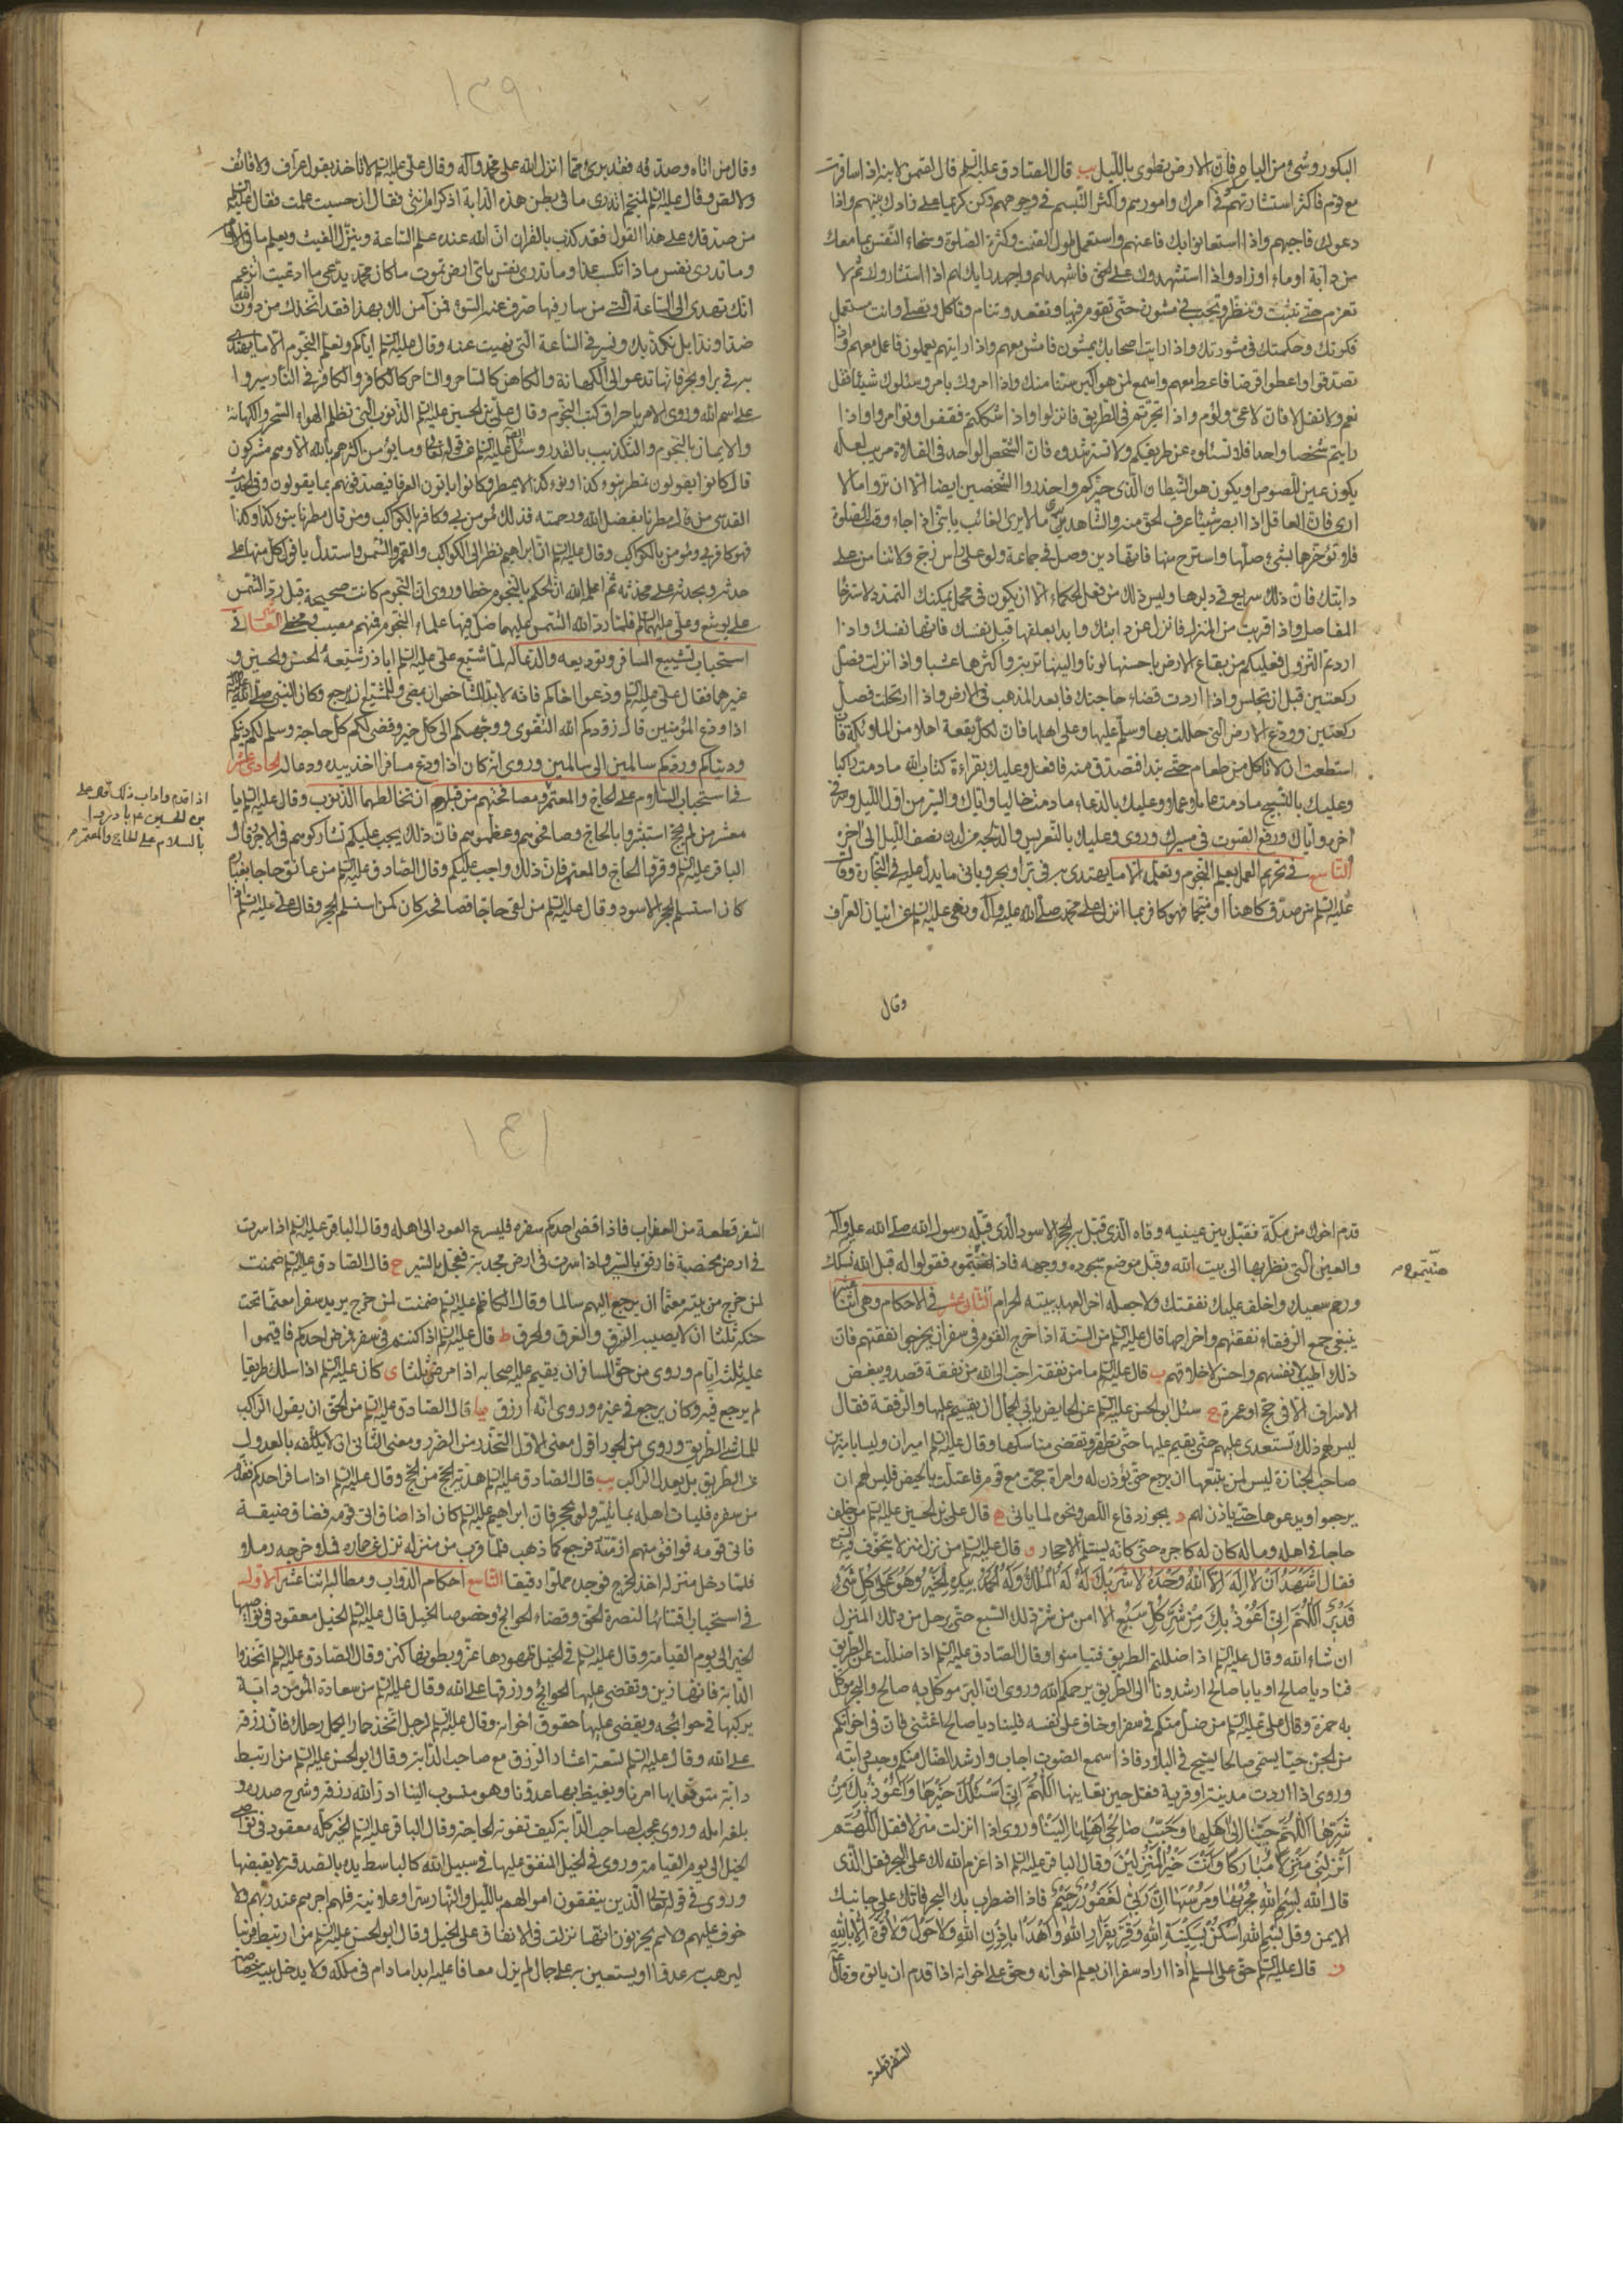 ١٣٩
البكور وشئ من الياه فان الارض تطوى بالليل يب قال الصادق عليه السلم قال لقمن لابنه اذا سافرت
مع قوم فاكثر استشارتهم في امرك وامورهم واكثر التبسم في وجوههم وكن كريما على زادك بينهم واذا
دعوك فاجبهم واذا استعانوا بك فاعنهم واستعمل طول الصمت وكثرة الصلوة وسخاء النفس بما معك
من دابة او ماء او زاد واذا استشهدوك على الحق فاشهد لهم واجهد رايك لهم اذا استشاروك ثم لا
تعزم حتى تثبت وتنظر ولا تجب في مشورة حتى تقوم فيها وتقعد وتنام وتاكل وتصلى وانت مستعمل
فكرتك وحكمتك في مشورتك واذا رايت اصحابك يمشون فامش معهم واذا رايتهم يعملون فاعمل معهم واذا
تصدقوا واعطوا قرضا فاعط معهم واسمع لمن هو اكبر منك سنا واذا امروك بامر وسئلوك شيئا فقل
نعم ولا تقل لا فان لا عي ولؤم واذا تحيرتم في الطريق فانزلوا واذا شككتم فقفوا وتوامروا واذا
رايتم شخصا واحدا فلا تسئلوه عن طريقكم ولا تسترشدوه فان الشخص الواحد في الفلاة مريب لعله
يكون عين اللصوص او يكون هو الشيطان الذي حيركم واحذروا الشخصين ايضا الا ان تروا ما لا
ارى فان العاقل اذا ابصر شيئا عرف الحق منه والشاهد يرى ما لا يرى الغائب يا بني اذا جاء وقت الصلوة
فلا تؤخرها بشيء صلها واسترح منها فانها دين وصل في جماعة ولو على راس زج ولا تنامن على
دابتك فان ذلك سريع في دبرها وليس ذلك من فعل الحكماء الا ان يكون في محمل يمكنك التمدد لاسترخاء
المفاصل واذا قربت من المنزل فانزل عن دابتك وابدا بعلفها قبل نفسك فانها نفسك واذا
اردتم النزول فعليكم من بقاع الارض باحسنها لونا والينها تربة واكثرها عشبا واذا نزلت فصل
ركعتين قبل ان تجلس واذا اردت قضاء حاجتك فابعد المذهب في الارض واذا ارتحلت فصل
ركعتين وودع الارض التي حللت بها وسلم عليها وعلى اهلها فان لكل بقعة اهلا من الملائكة فان
استطعت ان لا تاكل من طعام حتى تبدا فتصدق منه فافعل وعليك بقراءة كتاب الله ما دمت راكبا
وعليك بالتسبيح ما دمت عاملا وعليك بالدعاء ما دمت خاليا واياك والسير من اول الليل وسر في
اخره واياك ورفع الصوت في مسيرك وروى وعليك بالتعريس والدلجة من لدن نصف الليل الى اخره
التاسع في تحريم العمل بعلم النجوم وتعلمه الا ما يهتدى به في بر او بحر وياتي ما يدل عليه في التجارة وقال
عليه السلم من صدق كاهنا او منجما فهو كافر بما انزل على محمد صلى الله عليه وآله ونهى عليه السلم عن اتيان العراف
وقال
وقال من اتاه وصدقه فقد برئ مما انزل الله على محمد وآله وقال علي عليه السلم لا تاخذ بقول عراف ولا قائف
ولا لص وقال عليه السلم لمنجم اتدرى ما في بطن هذه الدابة اذكر ام انثى فقال ان حسبت علمت فقال عليه السلم
من صدقك على هذا القول فقد كذب بالقران ان الله عنده علم الساعة وينزل الغيث ويعلم ما في الارحام
وما تدرى نفس ماذا تكسب غدا وما تدرى نفس باى ارض تموت ما كان محمد يدعى ما ادعيت اتزعم
انك تهدى الى الساعة التي من سار فيها صرف عنه السوء فمن آمن لك بهذا فقد اتخذك من دون الله
ضدا وندا بل نكذبك ونسير في الساعة التي نهيت عنه وقال عليه السلم اياكم وتعلم النجوم الا ما يهتدى
به في بر او بحر فانها تدعو الى الكهانة والكاهن كالساحر والساحر كالكافر والكافر في النار سيروا
على اسم الله وروى الامر باحراق كتب النجوم وقال علي بن الحسين عليه السلم الذنوب التي تظلم الهواء السحر والكهانة
والايمان بالنجوم والتكذيب بالقدر وسئل عليه السلم عن قوله تعالى وما يؤمن اكثرهم بالله الا وهم مشركون
قال كانوا يقولون نمطر بنوء كذا وبنوء كذا لا نمطر وكانوا ياتون العرفا فيصدقونهم بما يقولون وفي الحديث
القدسي من قال مطرنا بفضل الله ورحمته فذلك مؤمن بي وكافر بالكواكب ومن قال مطرنا بنوء كذا وكذا
فهو كافر بي ومؤمن بالكواكب وقال عليه السلم ان ابراهيم نظر الى الكواكب والقمر والشمس واستدل بافول كل منها على
حدثه وبحدثه على محدثه ثم اعلمه الله ان الحكم بالنجوم خطا وروى ان النجوم كانت صحيحة قبل رد الشمس
على يوشع وعلي عليهما السلم فلما رد الله الشمس عليهما ضل فيها علماء النجوم فمنهم مصيب ومخطئ العاشر في
استحباب تشييع المسافر وتوديعه والدعاء له لما شيع علي عليه السلم اباذر شيعه الحسن والحسين و
غيرهما فقال علي عليه السلم ودعوا اخاكم فانه لابد للشاخص ان يمضى وللمشيع ان يرجع وكان النبي صلى الله عليه وآله
اذا ودع المؤمنين قال زودكم الله التقوى ووجهكم الى كل خير وقضى لكم كل حاجة وسلم لكم دينكم
ودنياكم وردكم سالمين الى سالمين وروى انه كان اذا ودع مسافرا اخذ بيده ودعا له الحادى عشر
في استحباب السلام على الحاج والمعتمر ومصافحتهم من قبل ان تخالطهما الذنوب وقال عليه السلم يا
معشر من لم يحج استبشروا بالحاج وصافحوهم وعظموهم فان ذلك يجب عليكم تشاركوهم في الاجر وقال
الباقر عليه السلم وقروا الحاج والمعتمر فان ذلك واجب عليكم وقال الصادق عليه السلم من عانق حاجا بغباره
كان كانما استلم الحجر الاسود وقال عليه السلم من لقى حاجا فصافحه كان كمن استلم الحجر وقال علي عليه السلم اذا
اذا قدم واداب ذلك قال علي
بن الحسين عم بادروا
بالسلام على الحاج والمعتمر م
١٤١
قدم اخوك من مكة فقبل بين عينيه وفاه الذي قبل به الحجر الاسود الذي قبله رسول الله صلى الله عليه وآله
والعين التي نظر بها الى بيت الله وقبل موضع سجوده ووجهه فاذا هنيتموه فقولوا له قبل الله نسكك
ورحم سعيك واخلف عليك نفقتك ولا جعله اخر العهد ببيته الحرام الثاني عشر في الاحكام وهي اثنا عشر
هنيتموه م
ينبغي جمع الرفقاء نفقتهم واخراجها قال عليه السلم من السنة اذا خرج القوم في سفر ان يخرجوا نفقتهم فان
ذلك اطيب لانفسهم واحسن لاخلاقهم ب قال عليه السلم ما من نفقة احب الى الله من نفقة قصد ويبغض
الاسراف الا في حج او عمرة ج سئل ابو الحسن عليه السلم عن الحايض يابى الجمال ان يقيم عليها والرفقة فقال
ليس لهم ذلك تستعدى عليهم حتى يقيم عليها حتى تطهر وتقضى مناسكها وقال عليه السلم اميران وليسا باميرين
صاحب الجنازة ليس لمن يتبعها ان يرجع حتى يؤذن له وامراة حجت مع قوم فاعتلت بالحيض فليس لهم ان
يرجعوا ويدعوها حتى ياذن لهم د يجوز دفاع اللص ونحوه لما ياتى ه قال علي بن الحسين عليه السلم من خلف
حاجا في اهله وماله كان له كاجره حتى كانه يستلم الاحجار و قال عليه السلم من نزل منزلا يتخوف فيه السبع
فقال اشهد ان لا اله الا الله وحده لا شريك له له الملك وله الحمد بيده الخير وهو على كل شئ
قدير اللهم انى اعوذ بك من شر كل سبع الا امن من شر ذلك السبع حتى يرحل من ذلك المنزل
ان شاء الله وقال عليه السلم اذا ضللتم الطريق فتيامنوا وقال الصادق عليه السلم اذا ضللت عن الطريق
فناد يا صالح او يا با صالح ارشدونا الى الطريق يرحمكم الله وروى ان البر موكل به صالح والبحر موكل
به حمزة وقال علي عليه السلم من ضل منكم في سفر او خاف على نفسه فليناد يا صالح اغثني فان في اخوانكم
من الجن جنيا يسمى صالحا يسيح في البلاد فاذا سمع الصوت اجاب وارشد الضال منكم وحبس دابته
وروى اذا اردت مدينة او قرية فقل حين تعاينها اللهم انى اسئلك خيرها واعوذ بك من
شرها اللهم حببنا الى اهلها وحبب صالحى اهلها الينا وروى اذا نزلت منزلا فقل اللهم
انزلنى منزلا مباركا وانت خير المنزلين وقال الباقر عليه السلم اذا عزم الله لك على البحر فقل الذى
قال الله بسم الله مجريها ومرسيها ان ربى لغفور رحيم فاذا اضطرب بك البحر فاتك على جانبك
الايمن وقل بسم الله اسكن بسكينة الله وقر بقرار الله واهدا باذن الله ولا حول ولا قوة الا بالله
ز قال عليه السلم حق على المسلم اذا اراد سفرا ان يعلم اخوانه وحق على اخوانه اذا قدم ان ياتوه وقال
السفر قطعة
السفر قطعة من العذاب فاذا قضى احدكم سفره فليسرع العود الى اهله وقال الباقر عليه السلم اذا سرت
في ارض مخصبة فارفق بالسير واذا سرت في ارض مجدبة فعجل بالسير ح قال الصادق عليه السلم ضمنت
لمن خرج من بيته معتما ان يرجع اليهم سالما وقال الكاظم عليه السلم ضمنت لمن خرج يريد سفرا معتما تحت
حنكه ثلثا ان لا يصيبه السرق والغرق والحرق ط قال عليه السلم اذا كنتم في سفر فمرض احدكم فاقيموا
عليه ثلثة ايام وروى من حق المسافر ان يقيم عليه اصحابه اذا مرض ثلثا ى كان عليه السلم اذا سلك طريقا
لم يرجع فيه وكان يرجع في غيره وروى انه ارزق يا قال الصادق عليه السلم من الحق ان يقول الراكب
للماشى الطريق وروى من الجور اقول معنى الاول التحذر من الضرر ومعنى الثانى ان لا يكلفه بالعدول
عن الطريق بل يعدل الراكب يب قال الصادق عليه السلم هدية الحج من الحج وقال عليه السلم اذا سافر احدكم فقدم
من سفره فليات اهله بما تيسر ولو بحجر فان ابراهيم عليه السلم كان اذا ضاق اتى قومه فضاق ضيقة
فاتى قومه فوافق منهم ازمة فرجع كما ذهب فلما قرب من منزله نزل عن حماره فملا خرجه رملا و
فلما دخل منزله اخذ الخرج فوجده مملوا دقيقا التاسع احكام الدواب ومطالبه اثنا عشر الاول
في استحباب اقتنائها لنصرة الحق وقضاء الحوائج وخصوصا الخيل قال عليه السلم الخيل معقود في نواصيها
الخير الى يوم القيامة وقال عليه السلم في الخيل ظهورها عز وبطونها كنز وقال الصادق عليه السلم اتخذوا
الدابة فانها زين وتقضى عليها الحوائج ورزقها على الله وقال عليه السلم من سعادة المؤمن دابة
يركبها في حوائجه ويقضى عليها حقوق اخوانه وقال عليه السلم لرجل اتخذ حمارا يحمل رحلك فان رزقه
على الله وقال عليه السلم تسعة اعشار الرزق مع صاحب الدابة وقال ابو الحسن عليه السلم من ارتبط
دابة متوقعا بها امرنا ويغيظ بها عدونا وهو منسوب الينا ادر الله رزقه وشرح صدره و
بلغه امله وروى عجب لصاحب الدابة كيف تفوته الحاجة وقال الباقر عليه السلم الخير كله معقود في نواصى
الخيل الى يوم القيامة وروى في الخيل المنفق عليها في سبيل الله كالباسط يده بالصدقة لا يقبضها
وروى في قوله تعالى الذين ينفقون اموالهم بالليل والنهار سرا وعلانية فلهم اجرهم عند ربهم ولا
خوف عليهم ولا هم يحزنون انها نزلت في الانفاق على الخيل وقال ابو الحسن عليه السلم من ارتبط فرسا
ليرهب به عدوا او يستعين به على جمال لم يزل معافا عليه ابدا ما دام في ملكه ولا يدخل بيته خصاصة